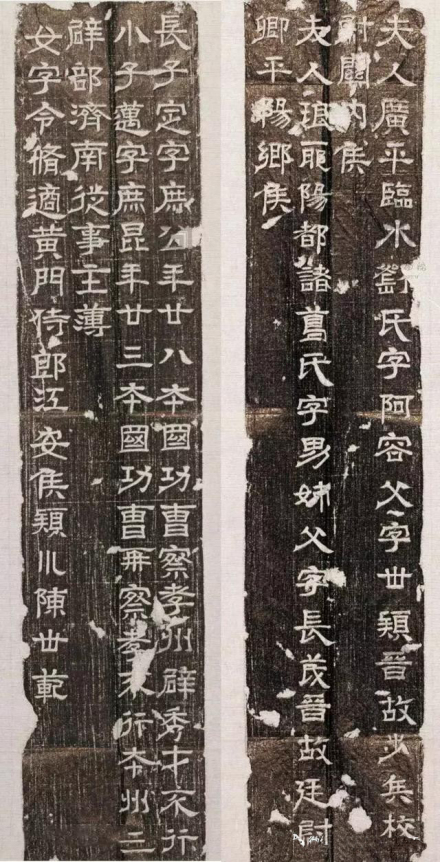 夫人廣平臨水劉氏字阿容父字世穎晉故步兵校
尉關內侯
夫人琅耶陽都諸葛氏字男姊父字長茂晉故廷尉
卿平陽鄉侯
長子定字庶公年廿八本國功曹察孝州辟秀才不行
小子邁字庶昆年廿三本國功曹再察孝不行本州三
辟部濟南從事主薄
女字令脩適黃門侍郎江安侯潁川陳世範